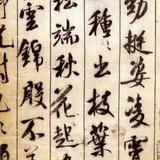 勁挺姿凌霄
種〻出枝葉
松端秋花起
雲錦殷不